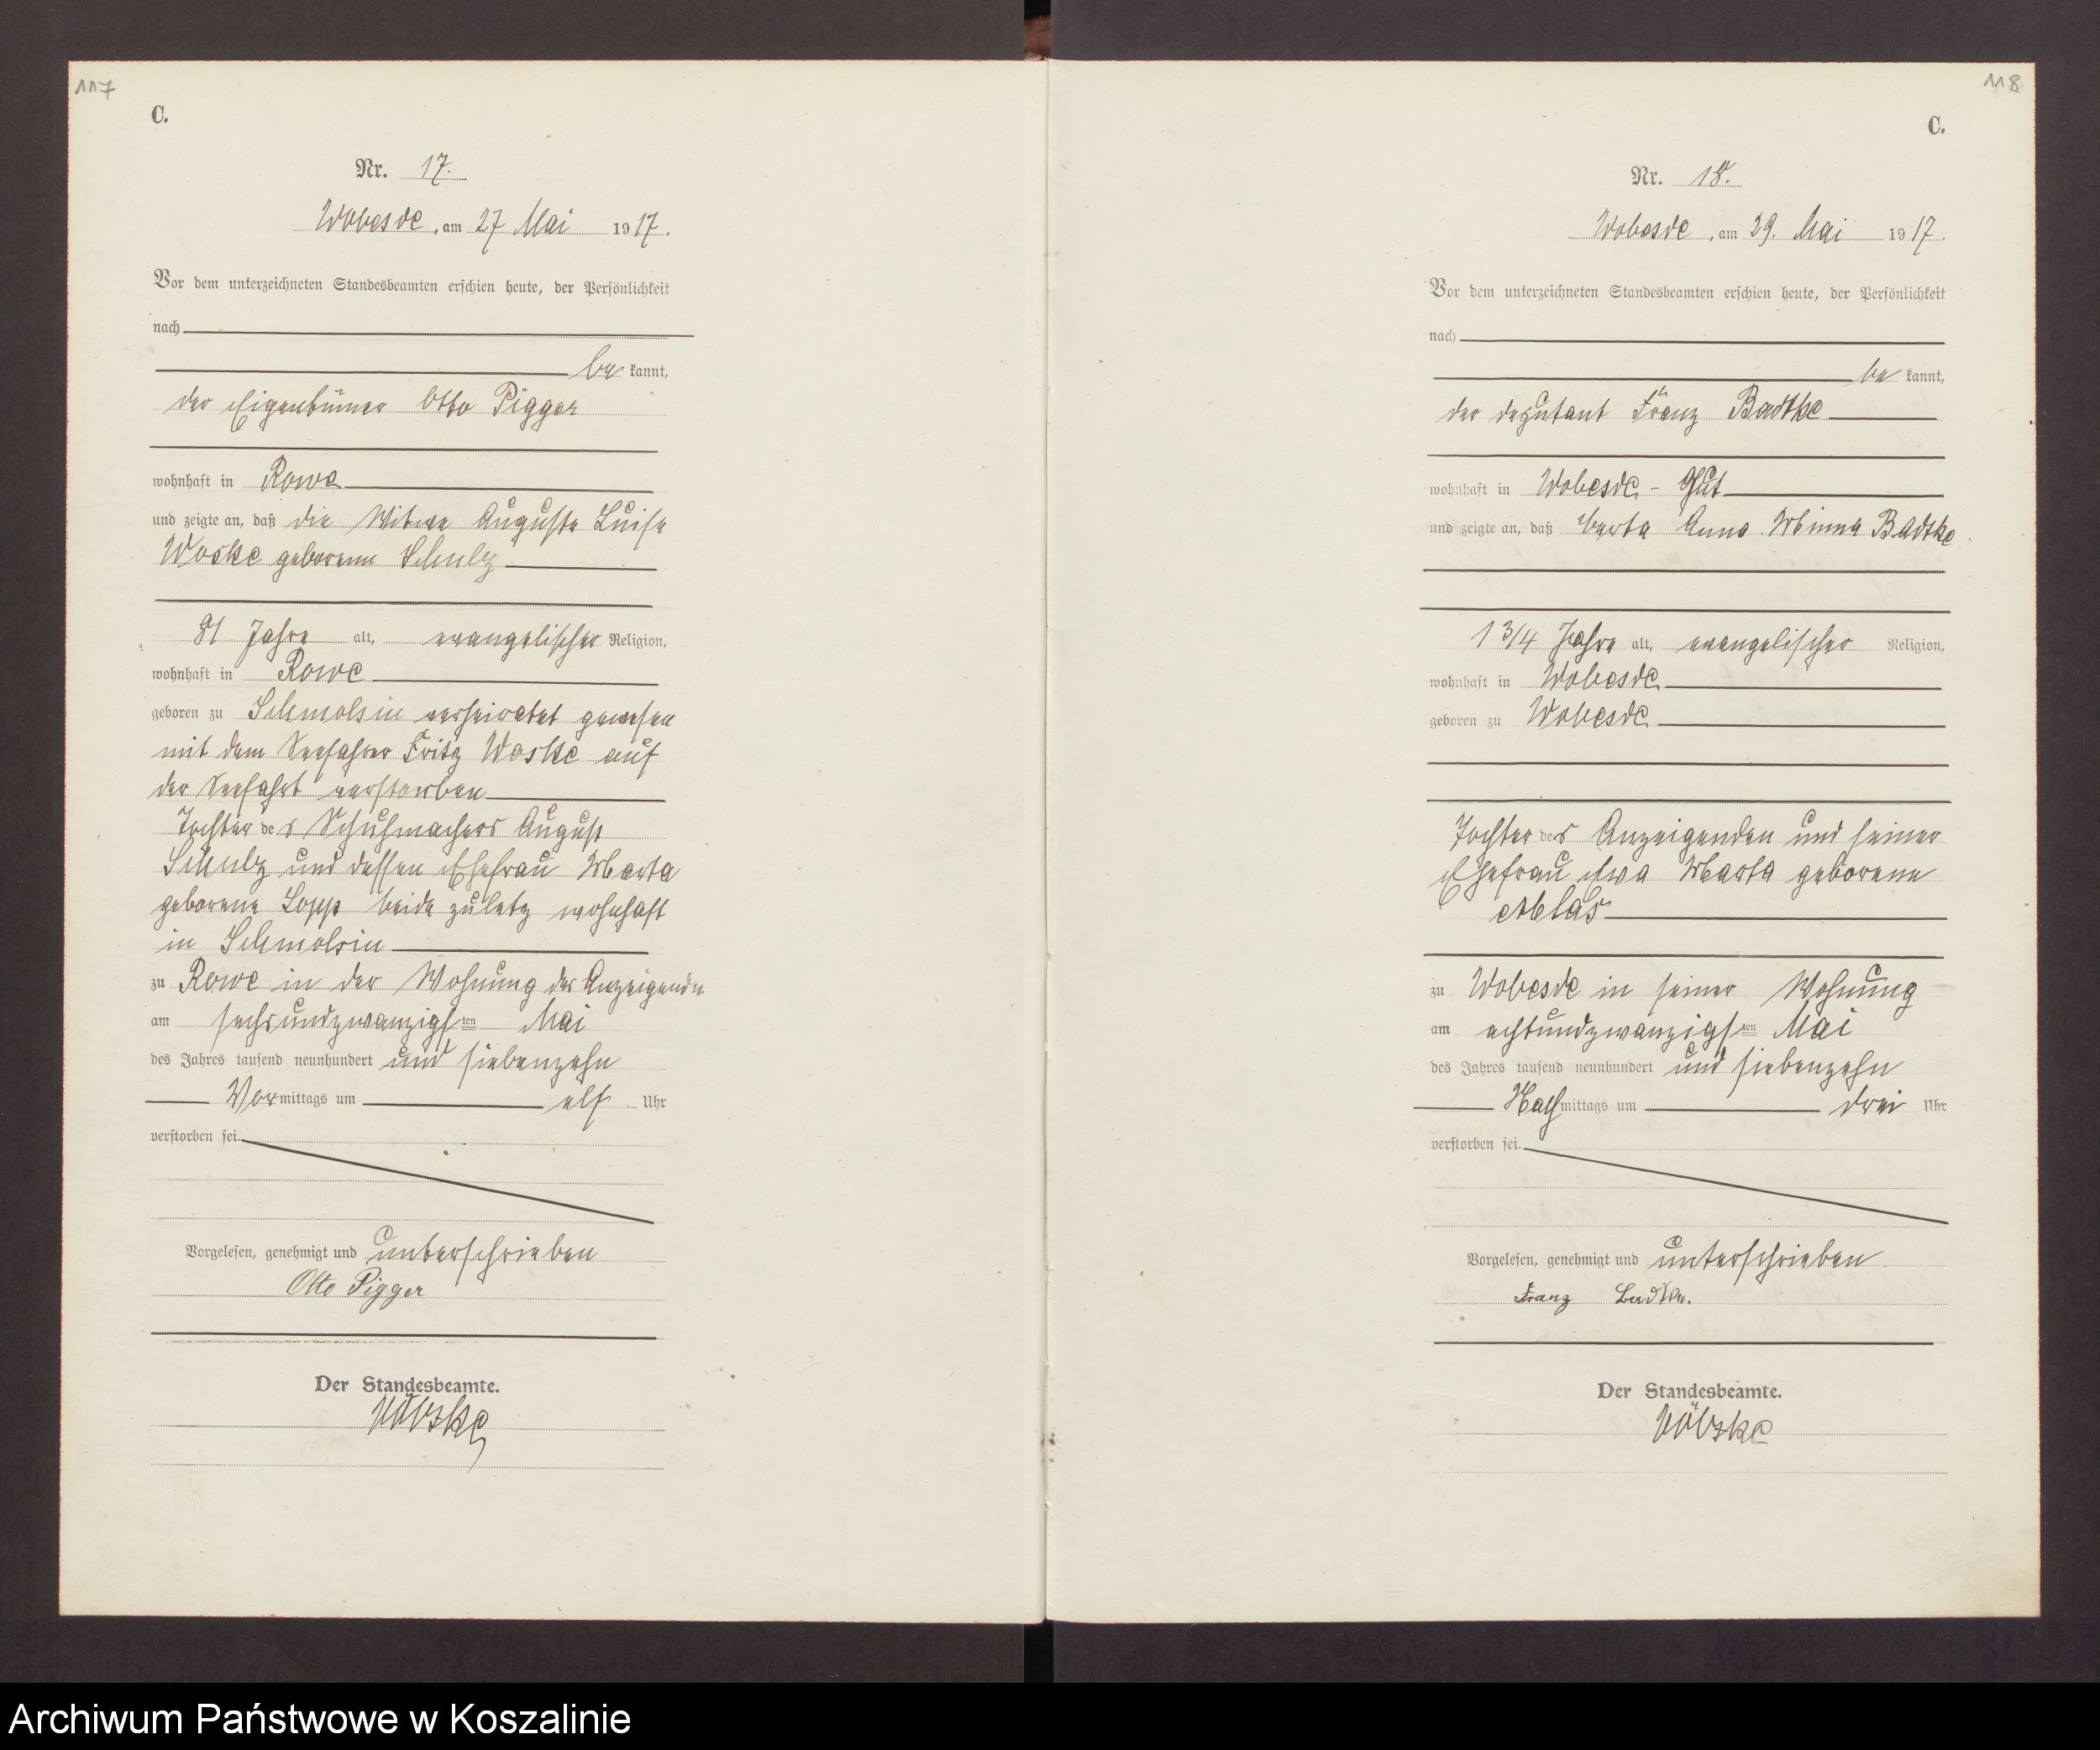 117
C.
Nr. 17.
Wobesde, am 27 Mai 1917.
Vor dem unterzeichneten Standesbeamten erschien heute, der Persönlichkeit
nach
be kannt,
der Eigentümer Otto Pigger
wohnhaft in Rowe
und zeigte an, daß die Witwe Auguste Luise
Woske geborene Schulz
81 Jahre alt, evangelischer Religion,
wohnhaft in Rowe
geboren zu Schmolsin verheiratet gewesen
mit dem Seefahrer Fritz Woske auf
der Seefahrt verstorben
Tochter des Schuhmachers August
Schulz und dessen Ehefrau Marta
geborene Lopp beide zuletz wohnhaft
in Schmolsin
zu Rowe in der Wohnung des Anzeigenden
am sechsundzwanzigsten Mai
des Jahres tausend neunhundert und siebenzehn
Vormittags um elf Uhr
verstorben sei.
Vorgelesen, genehmigt und unterschrieben
Otto Pigger
Der Standesbeamte.
118
C.
Nr. 18.
Wobesde, am 29. Mai 1917.
Vor dem unterzeichneten Standesbeamten erschien heute, der Persönlichkeit
nach
be kannt,
der Deputant Franz Badtke
wohnhaft in Wobesde - Gut
und zeigte an, daß Berta Anna Minna Badtke
1 3/4 Jahre alt, evangelischer Religion,
wohnhaft in Wobesde
geboren zu Wobesde
Tochter des Anzeigenden und seiner
Ehefrau Ewa Marta geborene
zu Wobesde in seiner Wohnung
am achtundzwanzigsten Mai
des Jahres tausend neunhundert und siebenzehn
Nachmittags um drei Uhr
verstorben sei.
Vorgelesen, genehmigt und unterschrieben
Franz Badtke.
Der Standesbeamte.
Archiwum Państwowe w Koszalinie